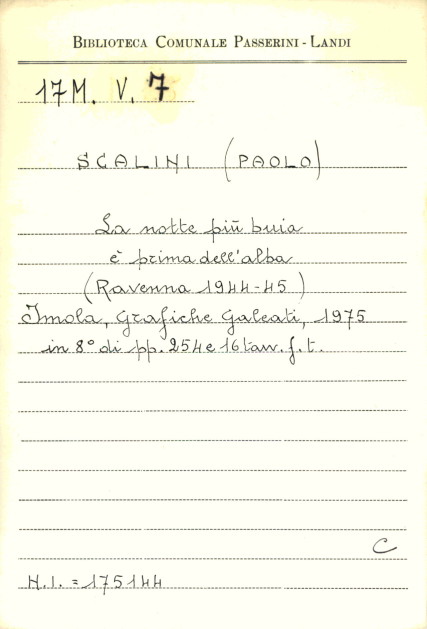 BIBLIOTECA COMUNALE PASSERINI - LANDI
17M. V. 7
SCALINI (PAOLO)
La notte più buia
è prima dell'alba
(Ravenna 1944-45)
Imola, Grafiche Galeati, 1975
in 8° di pp. 254 e 16 tav. f. t.
C
N.I. = 175144